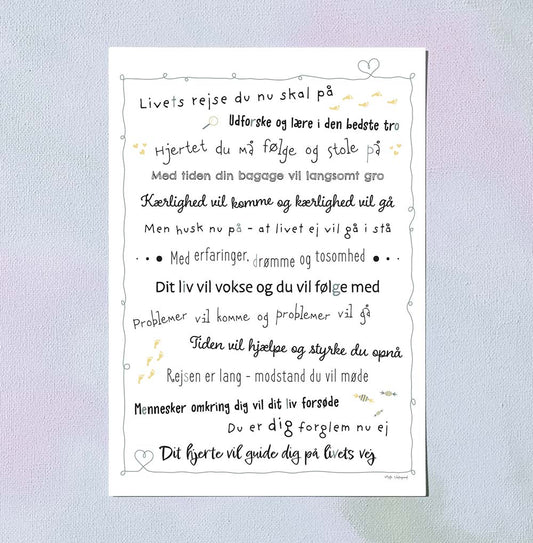 Livets rejse du nu skal på
Udforske og lære i den bedste tro
Hjertet du må følge og stole på
Med tiden din bagage vil langsomt gro
Kærlighed vil komme og kærlighed vil gå
Men husk nu på - at livet ej vil gå i stå
Med erfaringer, drømme og tosomhed
Dit liv vil vokse og du vil følge med
Problemer vil komme og problemer vil gå
Tiden vil hjælpe og styrke du opnå
Rejsen er lang - modstand du vil møde
Mennesker omkring dig vil dit liv forsøde
Du er dig forglem nu ej
Dit hjerte vil guide dig på livets vej